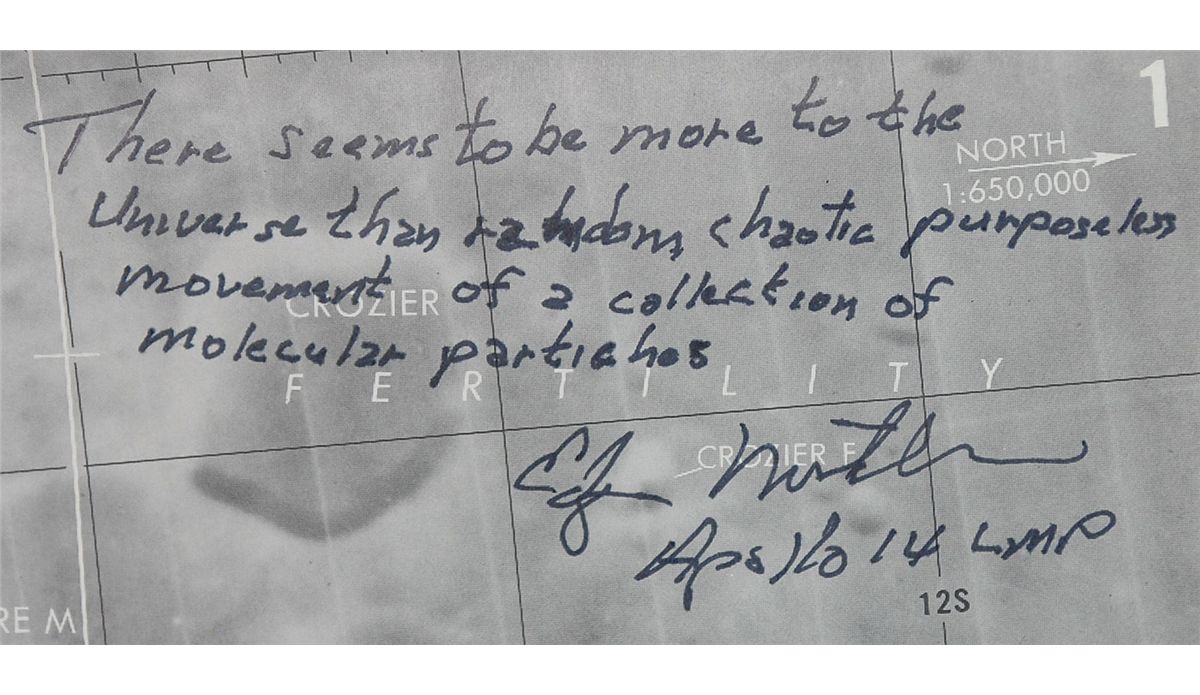 1
There seems to be more to the
NORTH
1:650,000
Universe than random, chaotic purposeless
movement of a collection of
CROZIER
molecular particles
FERTILITY
CROZIER F
Edgar Mitchell
Apollo 14 LMP
12S
RE M